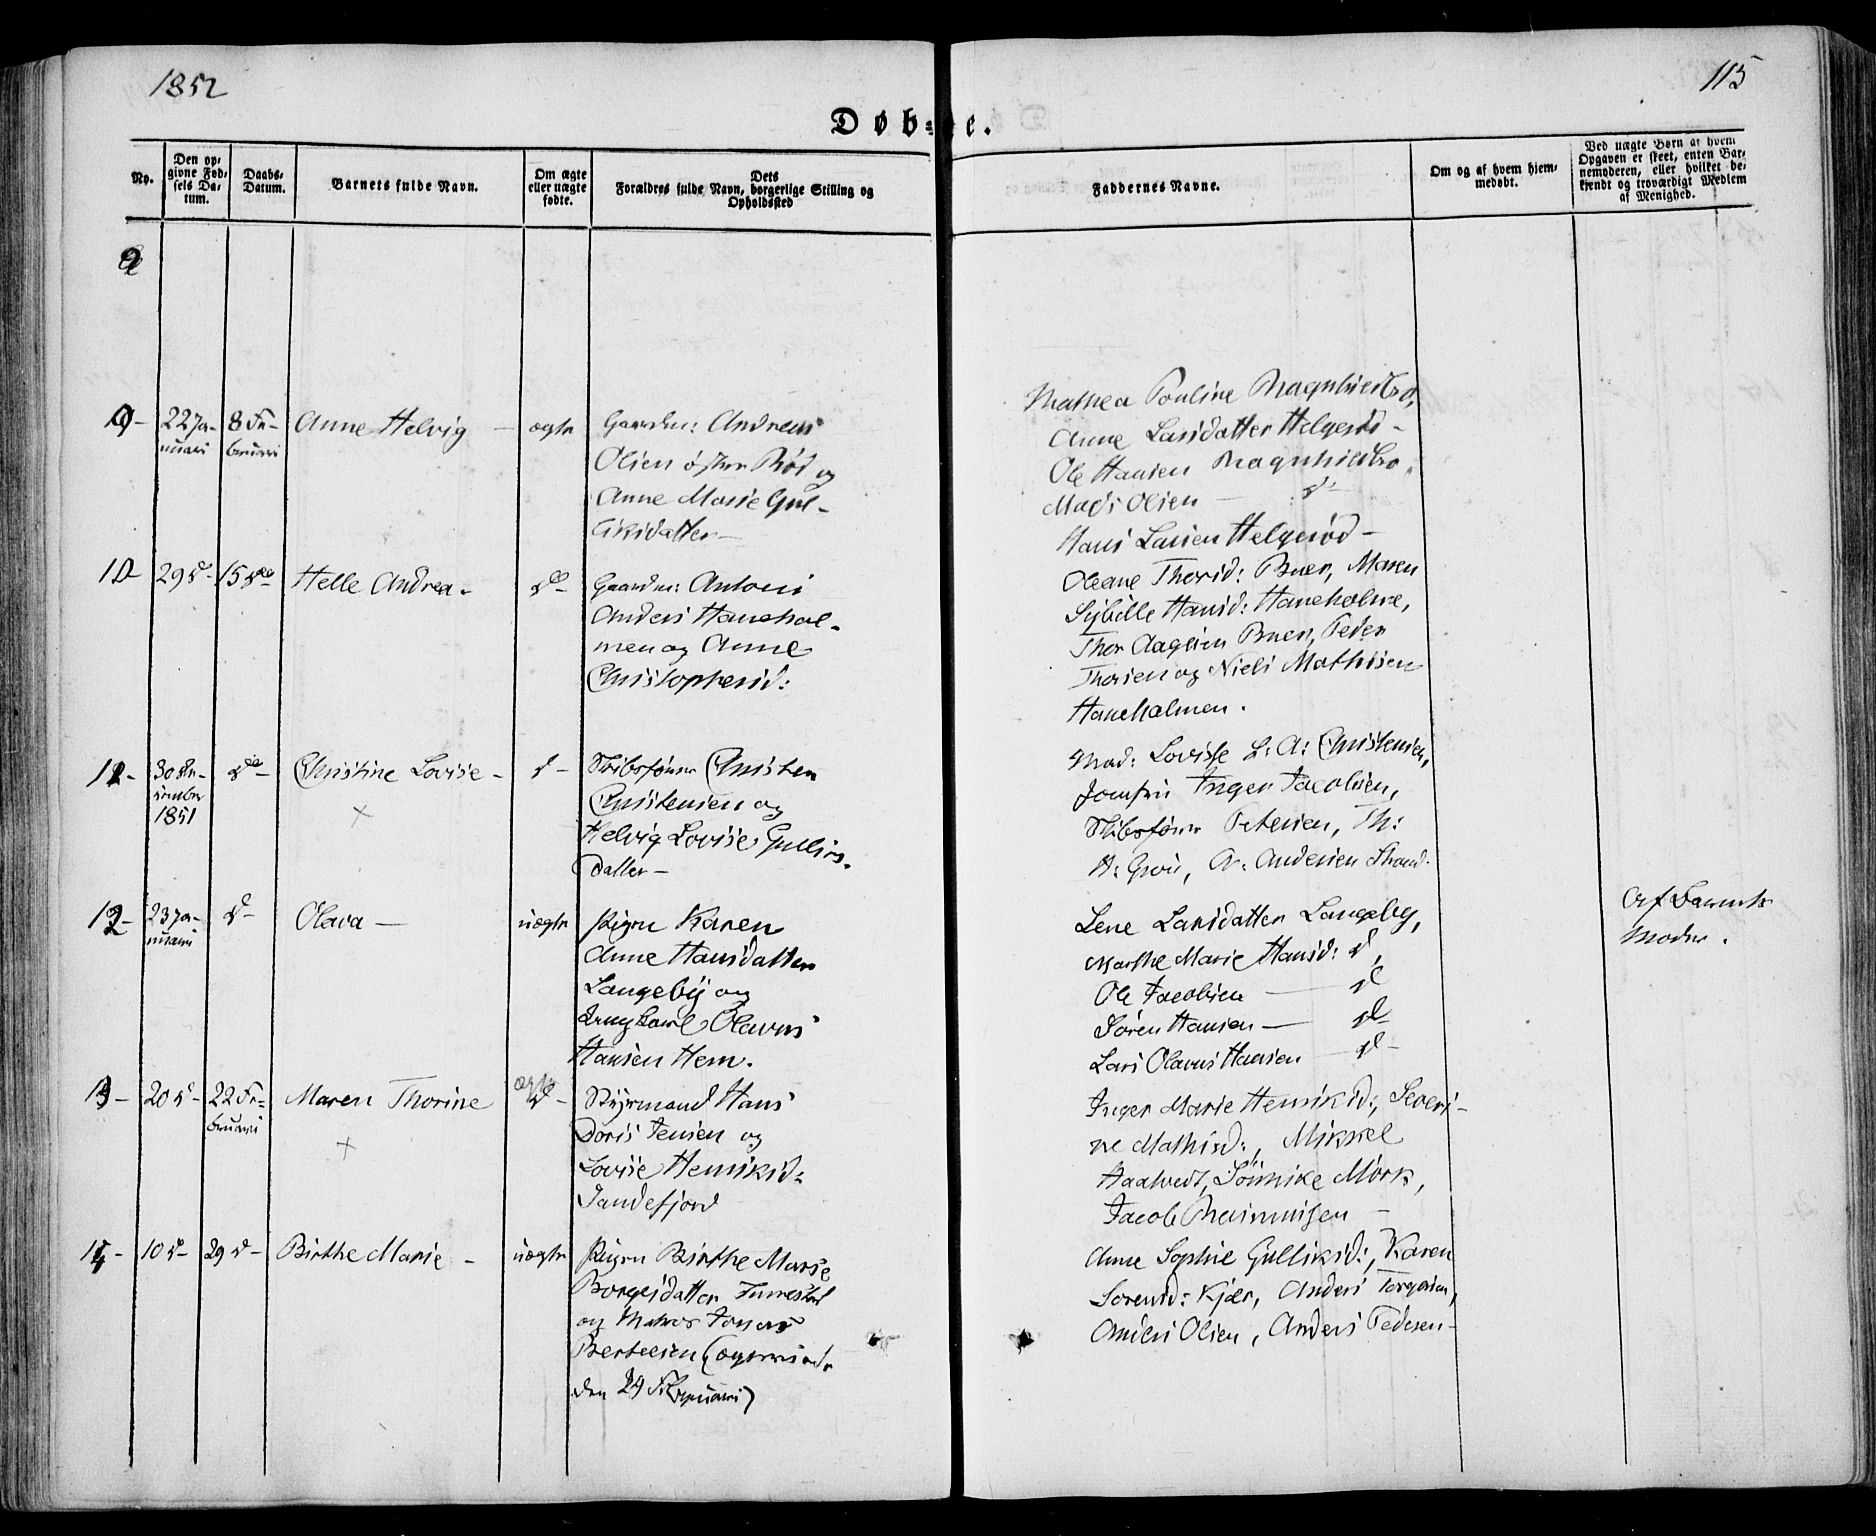 1852
115
Døb= e.
No.
Den op-
givne Fød-
sels Da-
tum.
Daabs-
Datum.
Barnets fulde Navn.
Om ægte
eller uægte
fødte.
Dets
Forældres fulde Navn, borgerlige Stilling og
Opholdssted
Faddernes Navne.
Om og af hvem hjem-
medøbt.
Ved uægte Børn af hvem
Opgaven er skeet, enten Bar-
nemoderen, eller hvilket be-
kjendt og troværdigt Medlem
af Menighed.
9
9- 22 Ja-
nuari
8 Fe-
bruari
Anne Helvig - ægte
Gaardm: Andreas
Olsen østre Rød og
Anne Marie Gul-
liksdatter-
Mathea Pouline Magnhildbo,
Anne Larsdatter Helgerød-
Ole Hansen Magnhildbo,
Mads Olsen - d-
Hans Larsen Helgerød-
10 29 d- 15 de Helle Andrea- do-
Gaardm: Antoni
Anders Haneholmen og Anne
Christophersd:
Oleane Thorsd: Buer, Maren
Sybille Hansd: Haneholme,
Thor Aagesen Buer, Peder
Thorsen og Niels Mathisen
Haneholmen.
11- 30 De-
cember
1851
de- Christine Lovise- d-
Skibsfører Christen
Christensen og
Helvig Lovise Gulliks-
datter-
Mad: Lovisse L: A: Christensen,
Jomfru Inger Jacobsen,
Skibsfører Petersen, Th:
A: Grøn, A: Andersen Strand-
12- 23 Ja-
nuari
d- Olava- uægte
Pigen Karen
Anne Hansdatter
Langeby og
Ungkarl Olavus
Hansen Hem.
Lene Larsdatter Langeby,
Marthe Marie Hansd: d,
Ole Jacobsen - d
Søren Hansen- d-
Lars Olavus Hansen - d-
Af Barnets
Moder.
13- 20 d- 22 Fe-
bruari
Maren Thorine ægte
d-
Styrmand Hans
Doris Jensen og
Lovise Henriksd:
Sandefjord
Inger Marie Henriksd:, Severi-
ne Mathisd:, Mikkel
Haatvedt, Sönnike Mörk,
Jacob Rasmussen -
14- 10 d- 29 d- Birthe Marie - uægte
Pigen Birthe Marie
Borgesdatter
og Matros Jonas
Bertelsen (
den 29 Februari)
Anne Sophie Gulliksd:, Karen
Sorensd: Kjær, Anders Torgersen,
Anders Olsen, Anders Pedersen-